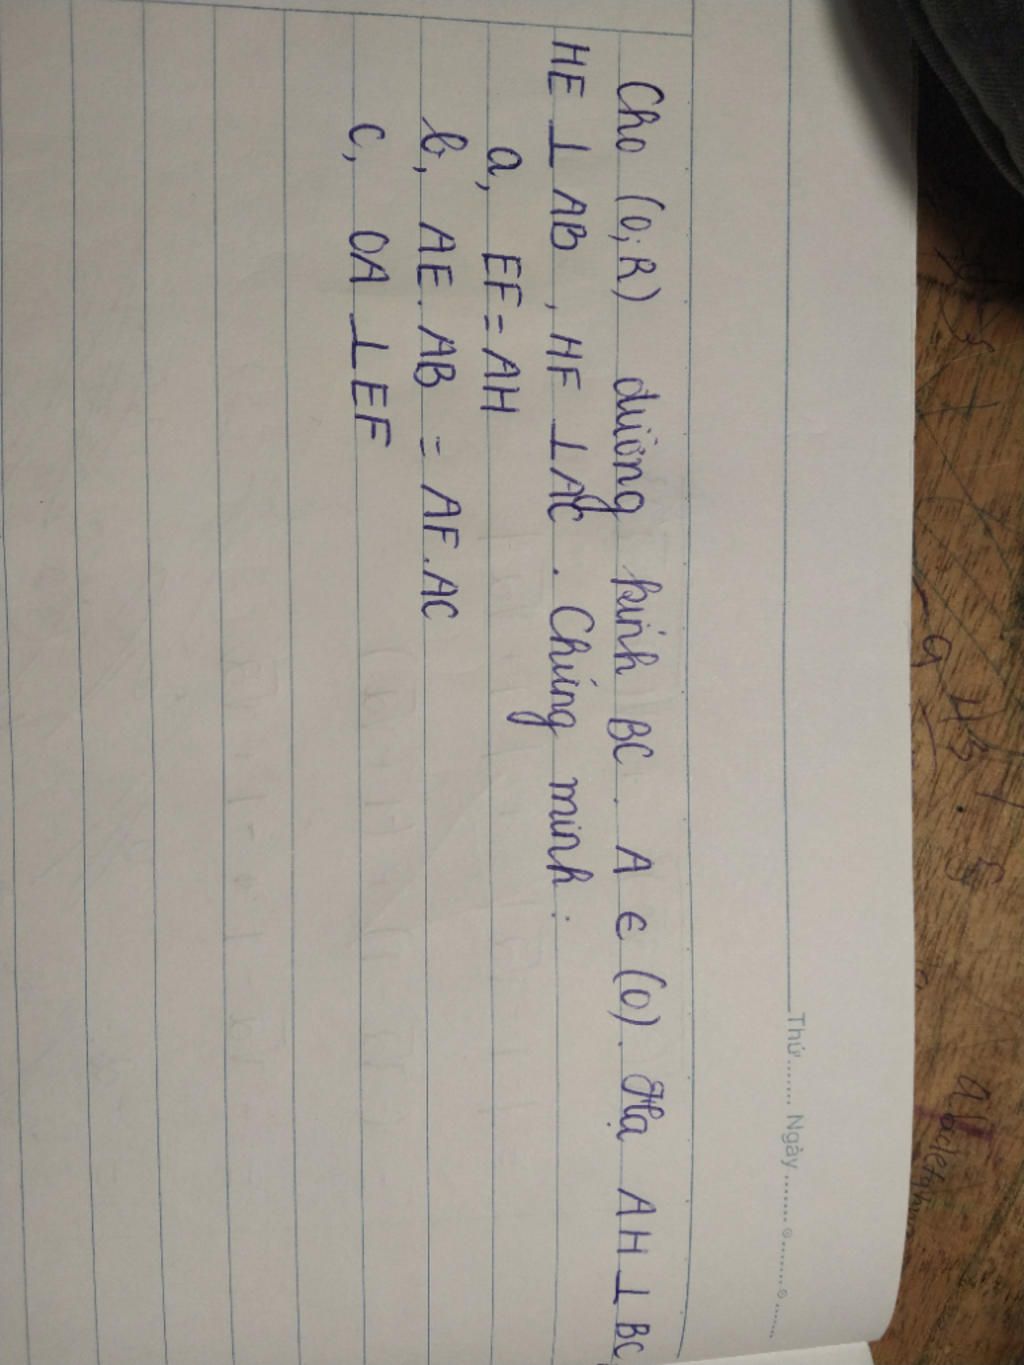 Thứ........ Ngày ........⊙........⊙........
Cho (O;R) đường kính BC. A ∈ (O). Hạ AH ⊥ BC,
HE ⊥ AB, HF ⊥ AC. Chứng minh:
a, EF = AH
b, AE.AB = AF.AC
c, OA ⊥ EF